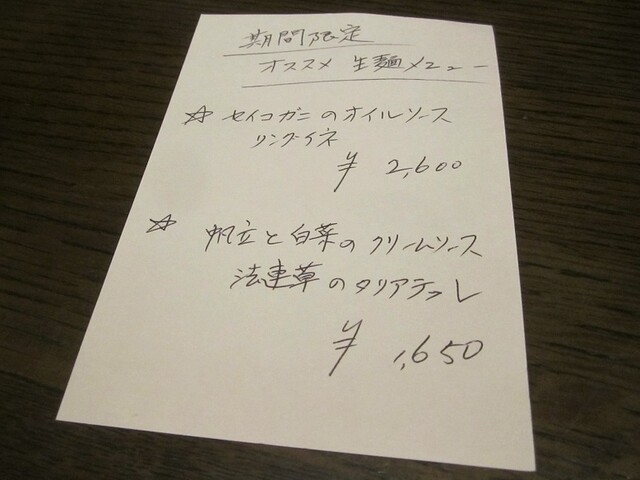 期間限定
オススメ 生麺メニュー
☆ セイコガニのオイルソース
リングイネ
¥ 2,600
☆ 帆立と白菜のクリームソース
法連草のタリアテッレ
¥ 1,650